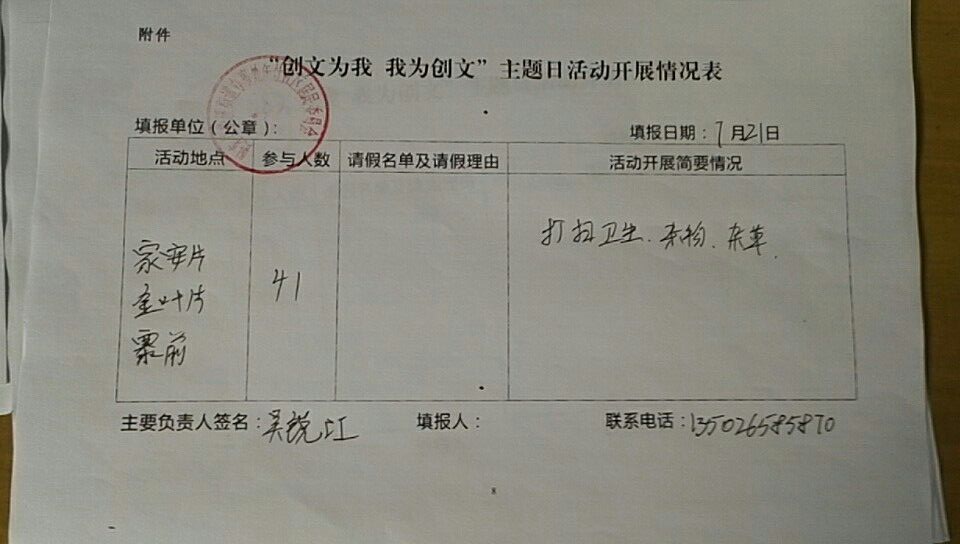 附件
“创文为我 我为创文”主题日活动开展情况表
填报单位（公章）： 填报日期：7月21日
活动地点 参与人数 请假名单及请假理由 活动开展简要情况
打扫卫生、杂物、杂草
家安片
金叶片 41
前
主要负责人签名：吴锐江 填报人： 联系电话：135026585870